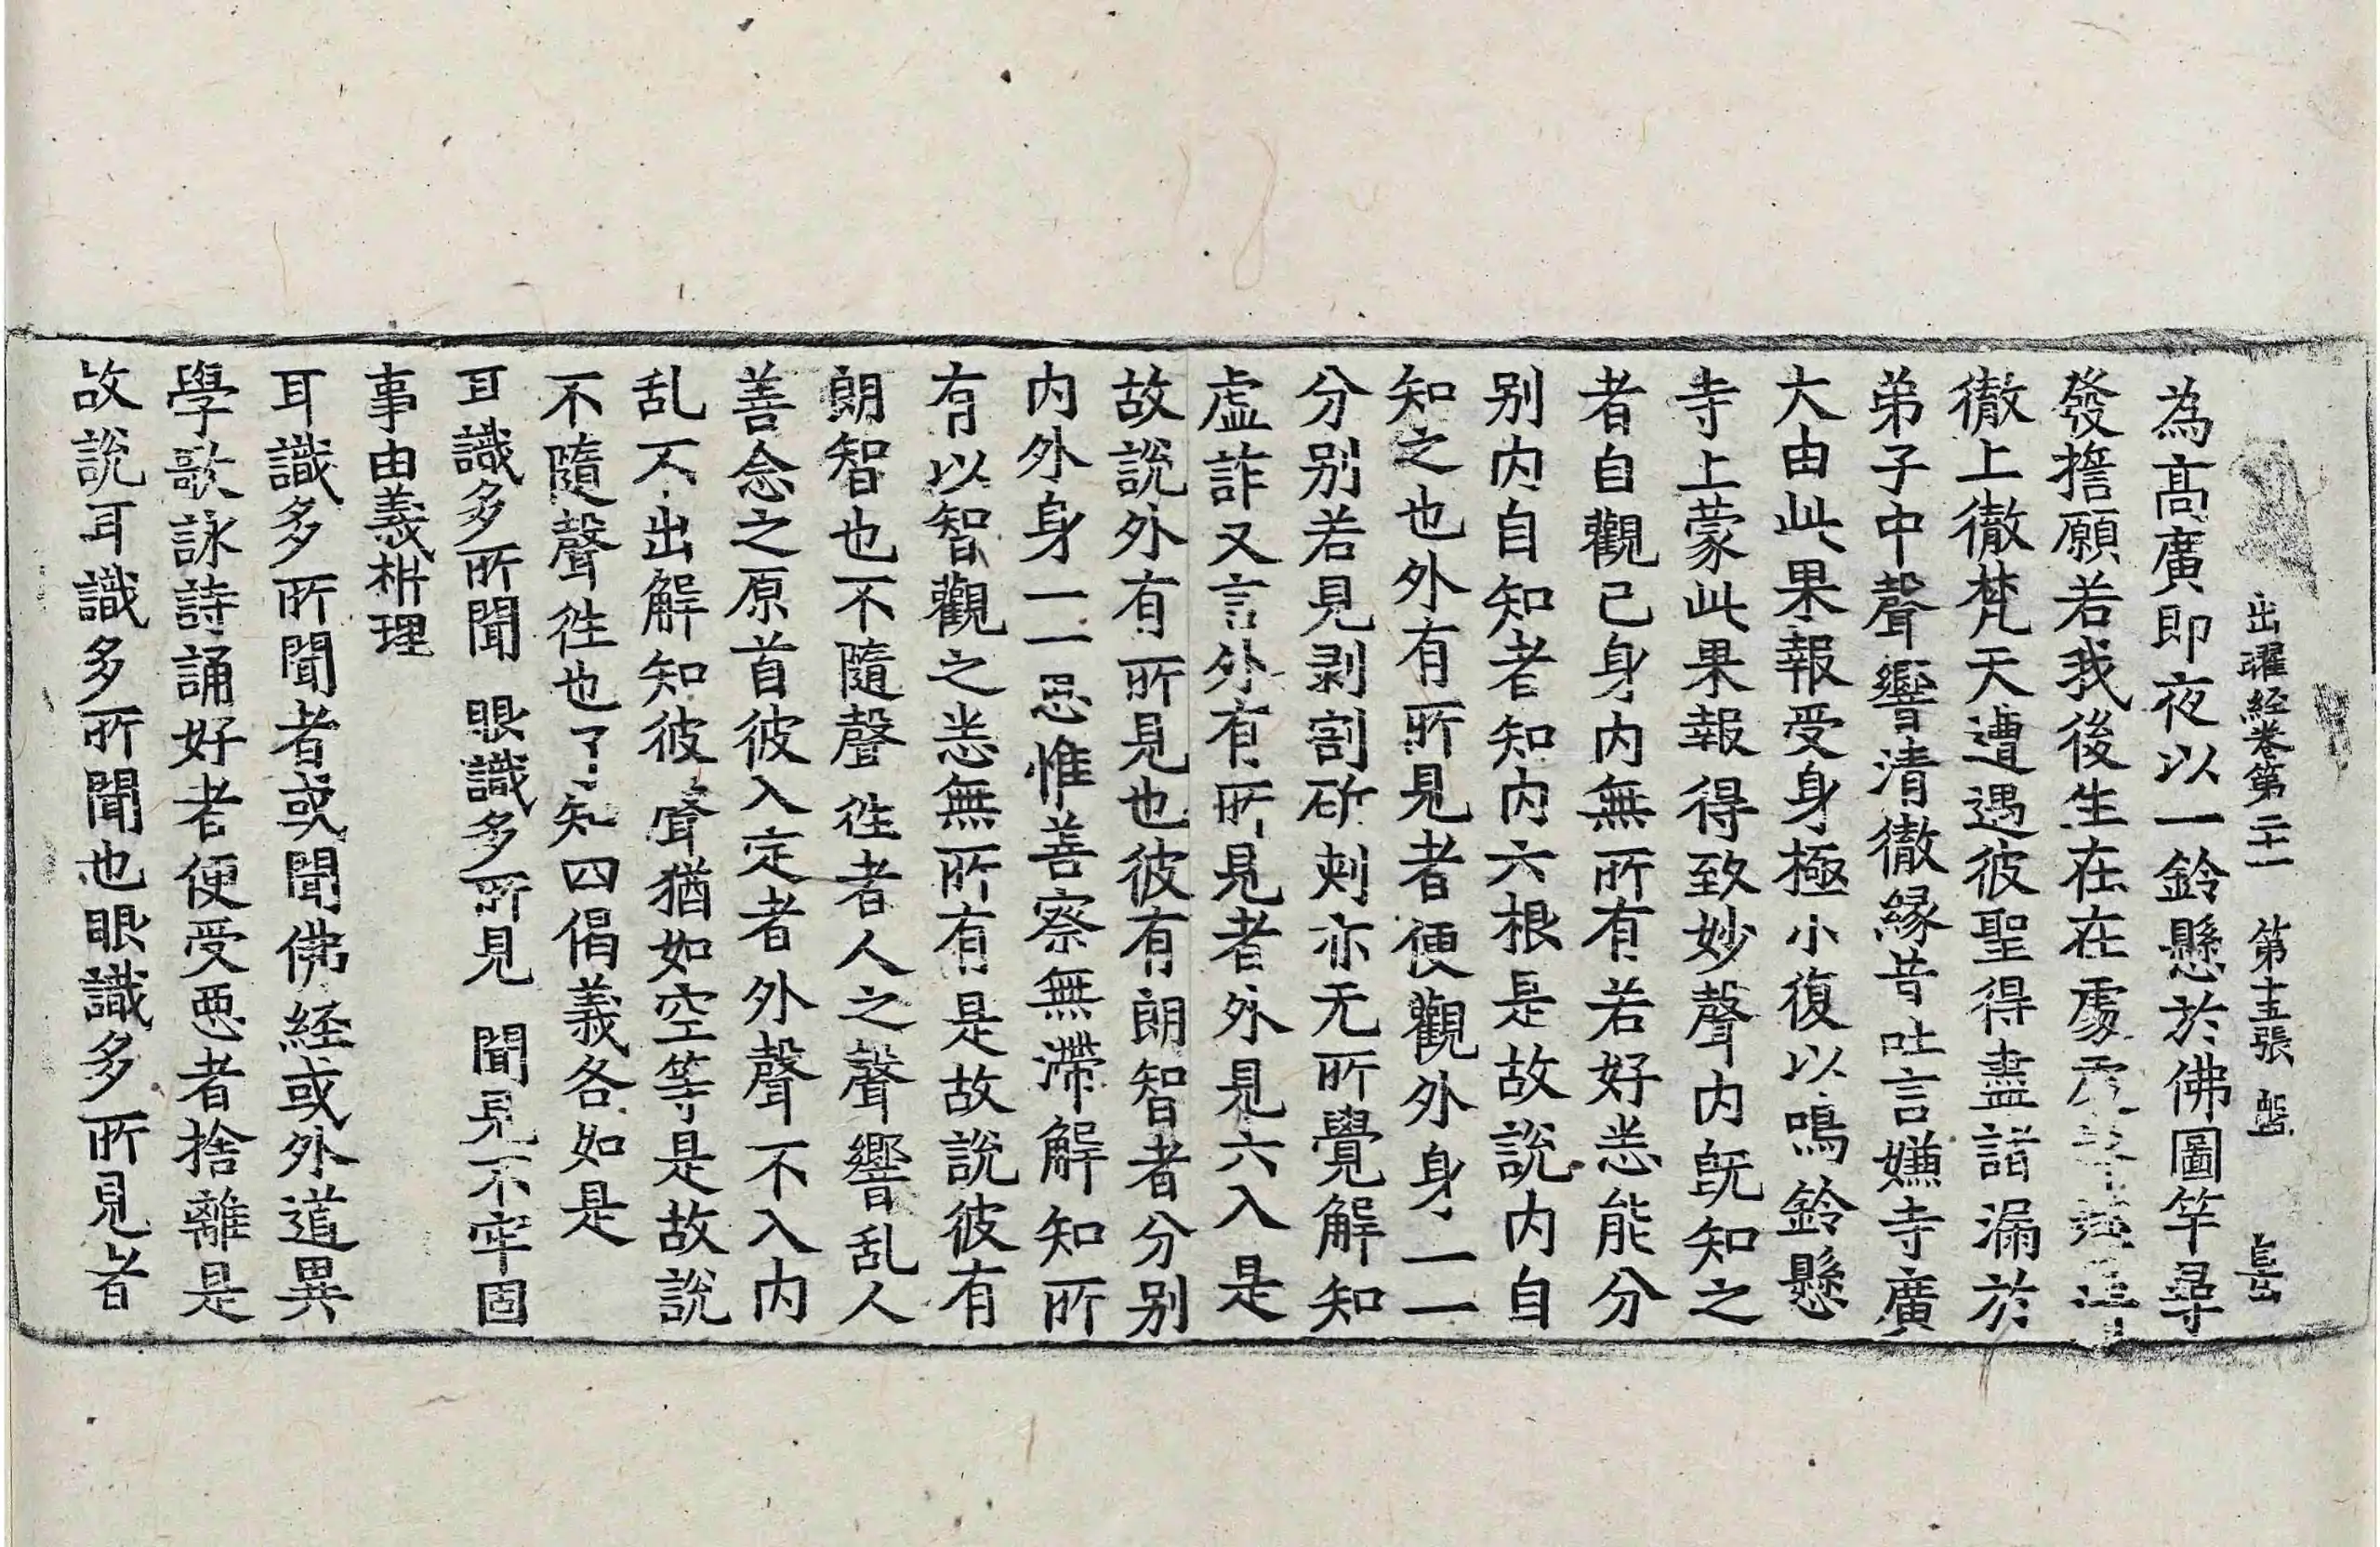 出曜経卷第二十一　第十五張　盤　長
為高廣即夜以一鈴懸於佛圖竿尋
發擔願若我後生在在處
徹上徹梵天遭遇彼聖得盡諸漏於
弟子中聲響清徹緣昔吐言嫌寺廣
大由此果報受身極小復以鳴鈴懸
寺上蒙此果報得致妙聲內既知之
者自觀己身內無所有若好惡能分
别內自知者知內六根是故說內自
知之也外有所見者便觀外身一一
分别若見剥割斫刺亦无所覺解知
虛詐又言外有所見者外見六入是
故說外有所見也彼有朗智者分别
內外身一一思惟善察無滯解知所
有以智觀之悉無所有是故說彼有
朗智也不隨聲往者人之聲響乱人
善念之原首彼入定者外聲不入內
乱不出解知彼聲猶如空等是故說
不隨聲往也了知四偈義各如是
耳識多所聞　眼識多所見　聞見不牢固
事由義析理
耳識多所聞者或聞佛経或外道異
學歌詠詩誦好者便受惡者捨離是
故說耳識多所聞也眼識多所見者